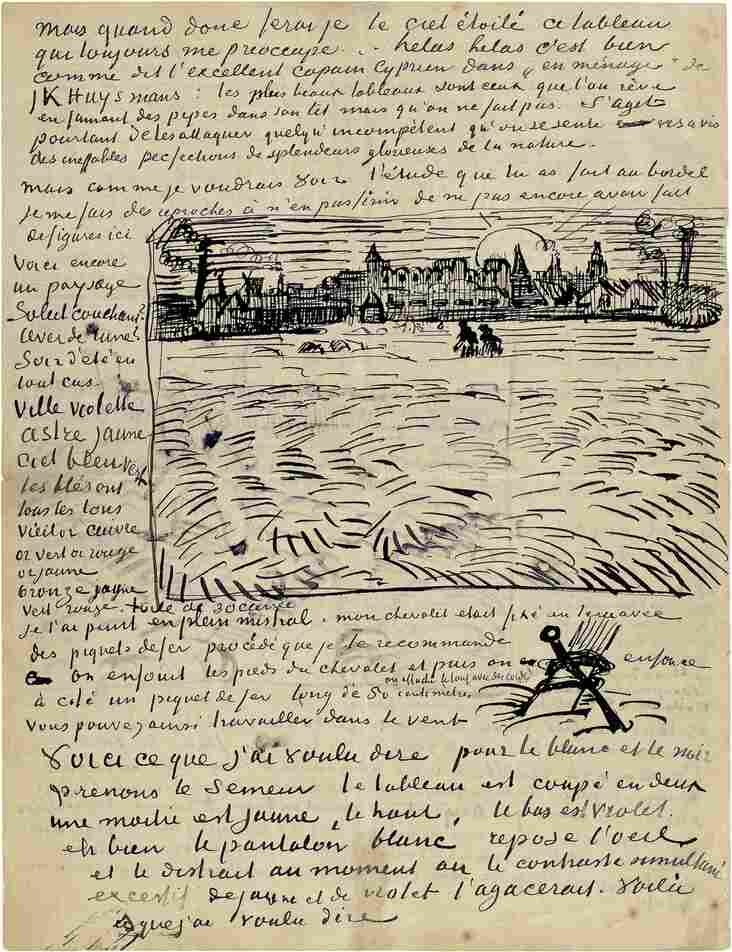 mais quand donc ferai je le ciel étoilé ce tableau
qui toujours me préoccupe. .. helas helas c'est bien
comme dit l'excellent copain Cyprien dans „en ménage" de
JK Huysmans: les plus beaux tableaux sont ceux que l'on rêve
en fumant des pipes dans son lit mais qu'on ne fait pas. S'agit
pourtant de les attaquer quelqu'incompétent qu'on se sente vis à vis
des ineffables perfections de splendeurs glorieuses de la nature.
Mais comme je voudrais voir l'étude que tu as fait au bordel
Je me fais des reproches à n'en pas finir de ne pas encore avoir fait
de figures ici
Voici encore
un paysage
Soleil couchant?
lever de lune?
Soir d'été en
tout cas.
Ville violette
astre jaune
ciel bleu vert
les blés ont
tous les tons
vieil or cuivre
or vert or rouge
or jaune
bronze jaune
vert rouge. toile de 30 carrée
je l'ai peint en plein mistral. mon chevalet était fixé en terre avec
des piquets de fer procédé que je te recommande
on enfouit les pieds du chevalet et puis on enfonce
à côté un piquet de fer long de 50 centimetres.
on attache le tout avec des cordes
Vous pouvez ainsi travailler dans le vent
Voici ce que j'ai voulu dire pour le blanc et le noir
prenons le Semeur le tableau est coupé en deux
une moitié est jaune, le haut, le bas est violet.
eh bien le pantalon blanc repose l'oeil
et le distrait au moment où le contraste simultané
excessif de jaune et de violet l'agacerait. Voilà
ce que j'ai voulu dire